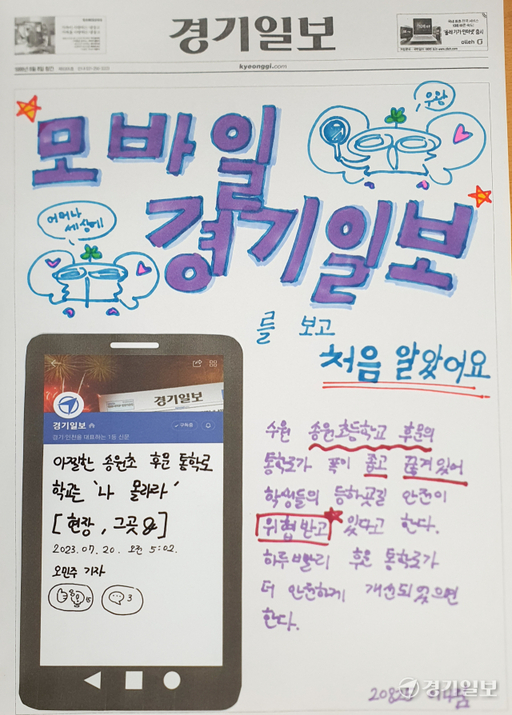 경기일보
kyeonggi.com
우왕
모바일
경기일보
어머나
세상에
를 보고
처음 알았어요
경기일보
경기일보
구독중
경기·인천을 대표하는 1등 신문
아찔한 송원초 후문 통학로
학교는 '나 몰라라'
[현장, 그곳&]
2023.07.20. 오전 5:02.
오민주 기자
3
수원 송원초등학교 후문의
통학로가 폭이 좁고 끊겨있어
학생들의 등하굣길 안전이
위협받고 있다고 한다.
하루빨리 후문 통학로가
더 안전하게 개선되었으면
한다.
경기일보